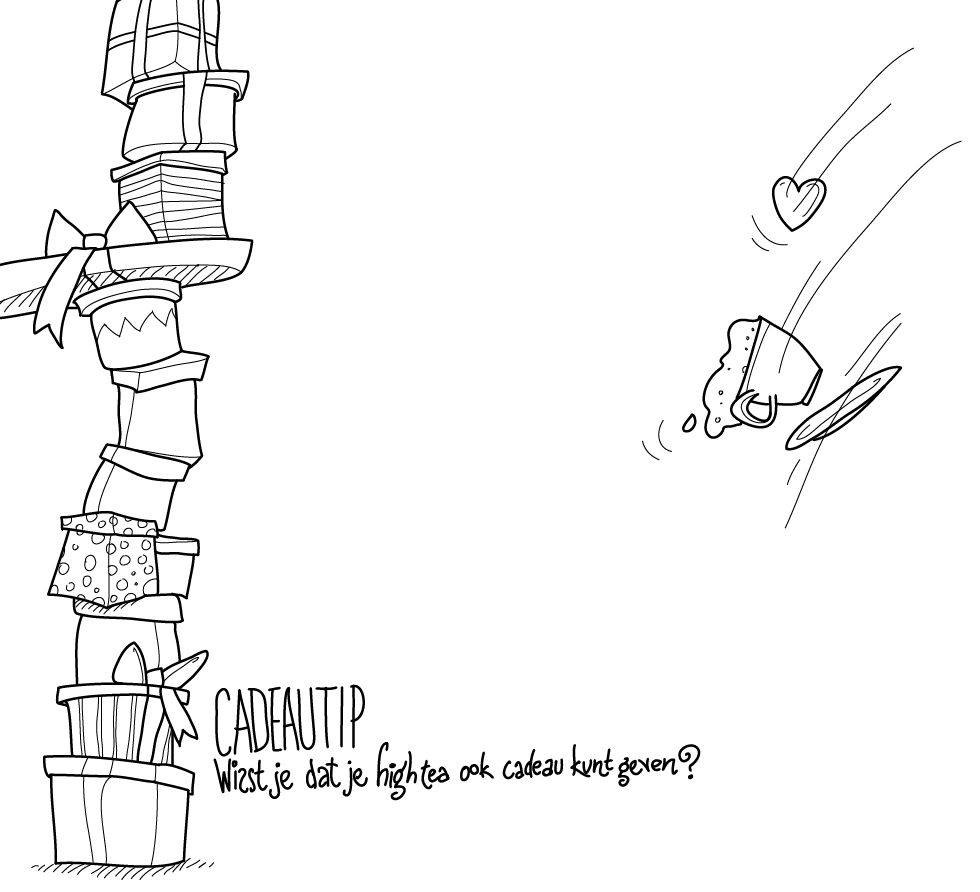 CADEAUTIP
Wist je dat je high tea ook cadeau kunt geven?